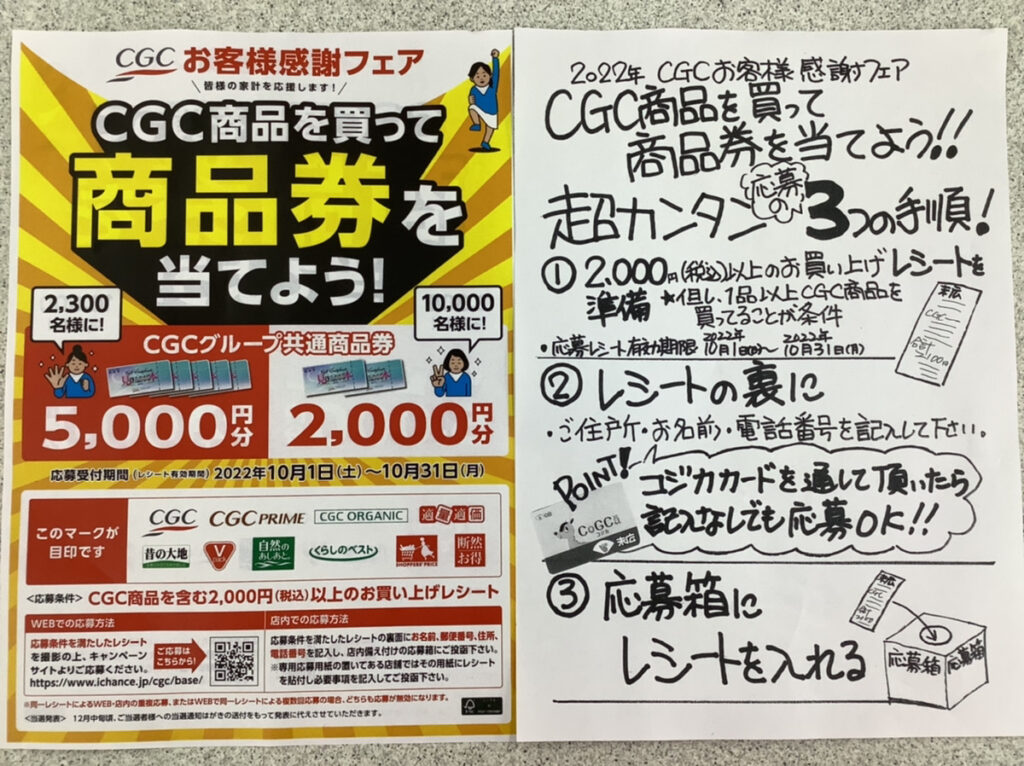 CGC お客様感謝フェア
皆様の家計を応援します!
CGC商品を買って
商品券を
当てよう!
2,300
名様に!
10,000
名様に!
CGCグループ共通商品券
5,000円分
2,000円分
応募受付期間(レシート有効期間)2022年10月1日(土)～10月31日(月)
このマークが
目印です
CGC CGC PRIME CGC ORGANIC 適量適価
昔の大地 V 自然のあしあと くらしのベスト SHOPPERS' PRICE 断然お得
<応募条件> CGC商品を含む2,000円(税込)以上のお買い上げレシート
WEBでの応募方法
応募条件を満たしたレシート
を撮影の上、キャンペーン
サイトよりご応募ください。
https://www.ichance.jp/cgc/base/
ご応募は
こちらから!
店内での応募方法
応募条件を満たしたレシートの裏面にお名前、郵便番号、住所、
電話番号を記入し、店内備え付けの応募箱にご投函下さい。
※専用応募用紙の置いてある店舗ではその用紙にレシート
を貼付し必要事項を記入してご投函下さい。
※同一レシートによるWEB・店内の重複応募、またはWEBで同一レシートによる複数回応募の場合、どちらも応募が無効になります。
<当選発表> 12月中旬頃、ご当選者様への当選通知はがきの送付をもって発表に代えさせていただきます。
FSC
2022年 CGCお客様感謝フェア
CGC商品を買って
商品券を当てよう!!
超カンタン応募の3つの手順!
① 2.000円(税込)以上のお買い上げレシートを
準備 ★但し、1品以上CGC商品を
買ってることが条件
・応募レシート有効期限 2022年10月1日(土)～2022年10月31日(月)
末広
CGC
合計
2,100円
② レシートの裏に
・ご住所・お名前・電話番号を記入して下さい。
POINT!
コジカカードを通して頂いたら
記入なしでも応募OK!!
CoGCa
コジカ
末広
③ 応募箱に
レシートを入れる
末広
CGC
応募箱
応募箱